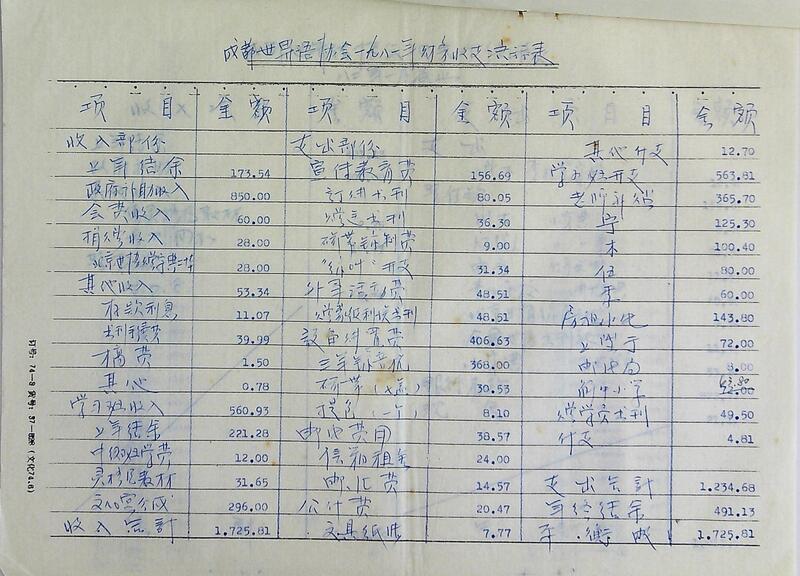 成都世界语协会一九八一年财务收支决算表
项 目 金 额 项 目 金 额 项 目 金 额
收入部份 支出部份 其他开支 12.70
上年结余 173.54 宣传教育费 156.69 学习班开支 563.81
政府补助收入 850.00 订阅书刊 80.05 老师补贴 365.70
会费收入 60.00 赠送书刊 36.30 125.30
捐赠收入 28.00 磁带录制费 9.00 100.40
28.00 "绿叶"开支 31.34 伍 80.00
其他收入 53.34 外事活动费 48.51 60.00
存款利息 11.07 48.51 房租水电 143.80
书刊手续费 39.99 设备购置费 406.63 72.00
稿费 1.50 三洋录音机 368.00 邮电局 8.00
其他 0.78 磁带 30.53 小学
学习班收入 560.93 提包(一个) 8.10 赠学员书刊 49.50
上年结余 221.28 邮电费用 38.57 什支 4.81
学费 12.00 信箱租金 24.00
教材 31.65 邮汇费 14.57 支出合計 1.234.68
文化宫分成 296.00 公什费 20.47 年终结余 491.13
收入合計 1.725.81 文具纸张 7.77 平衡 1.725.81